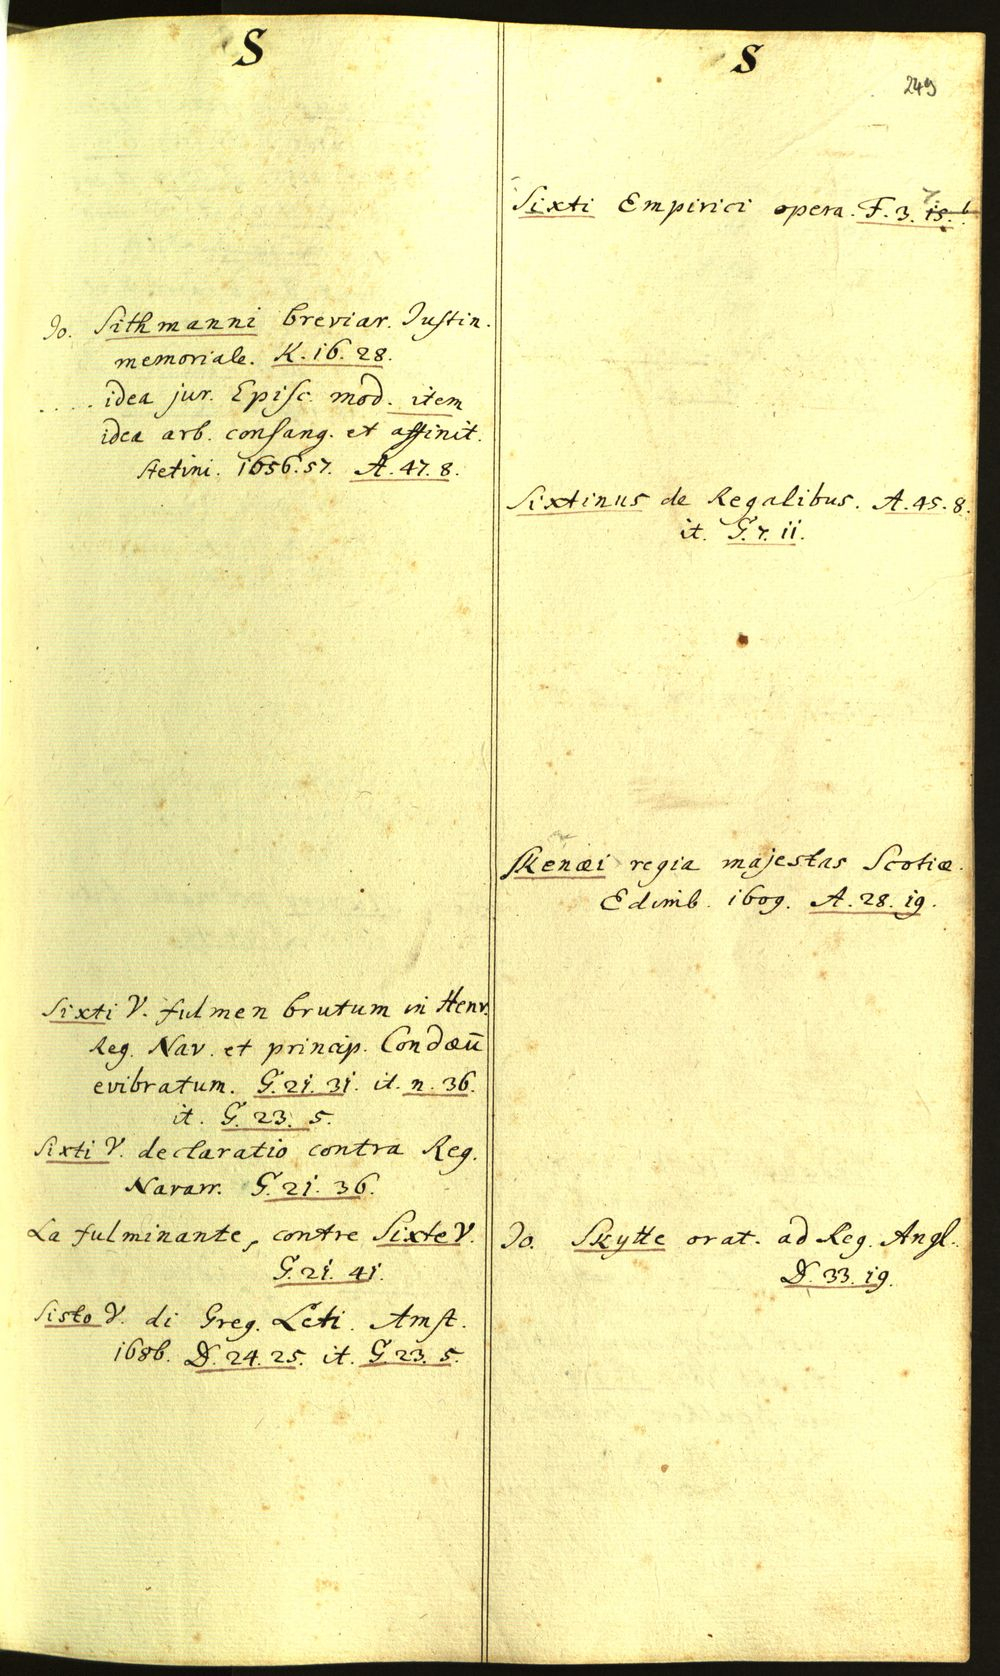 S
Jo. Sithmanni breviar. Justin.
memoriale. K. 16. 28.
.... idea jur. Episc. mod. item
idea arb. consang. et affinit.
Stetini. 1656. 57. A. 47. 8.
Sixti V. fulmen brutum in Henr.
Reg. Nav. et princip. Condæū
evibratum. G. 21. 31. it. n. 36.
it. G. 23. 5.
Sixti V. declaratio contra Reg.
Navarr. G. 21. 36.
La fulminante, contre Sixte V.
G. 21. 41.
Sisto V. di Greg. Leti. Amst.
1686. D. 24. 25. it. G. 23. 5.
S
249
Sixti Empirici opera. F. 3. 15. b.
7
Sixtinus de Regalibus. A. 45. 8.
it. G. 7. 11.
Skenæi regia majestas Scotiæ.
Edimb. 1609. A. 28. 19.
Jo. Skytte orat. ad Reg. Angl.
D. 33. 19.